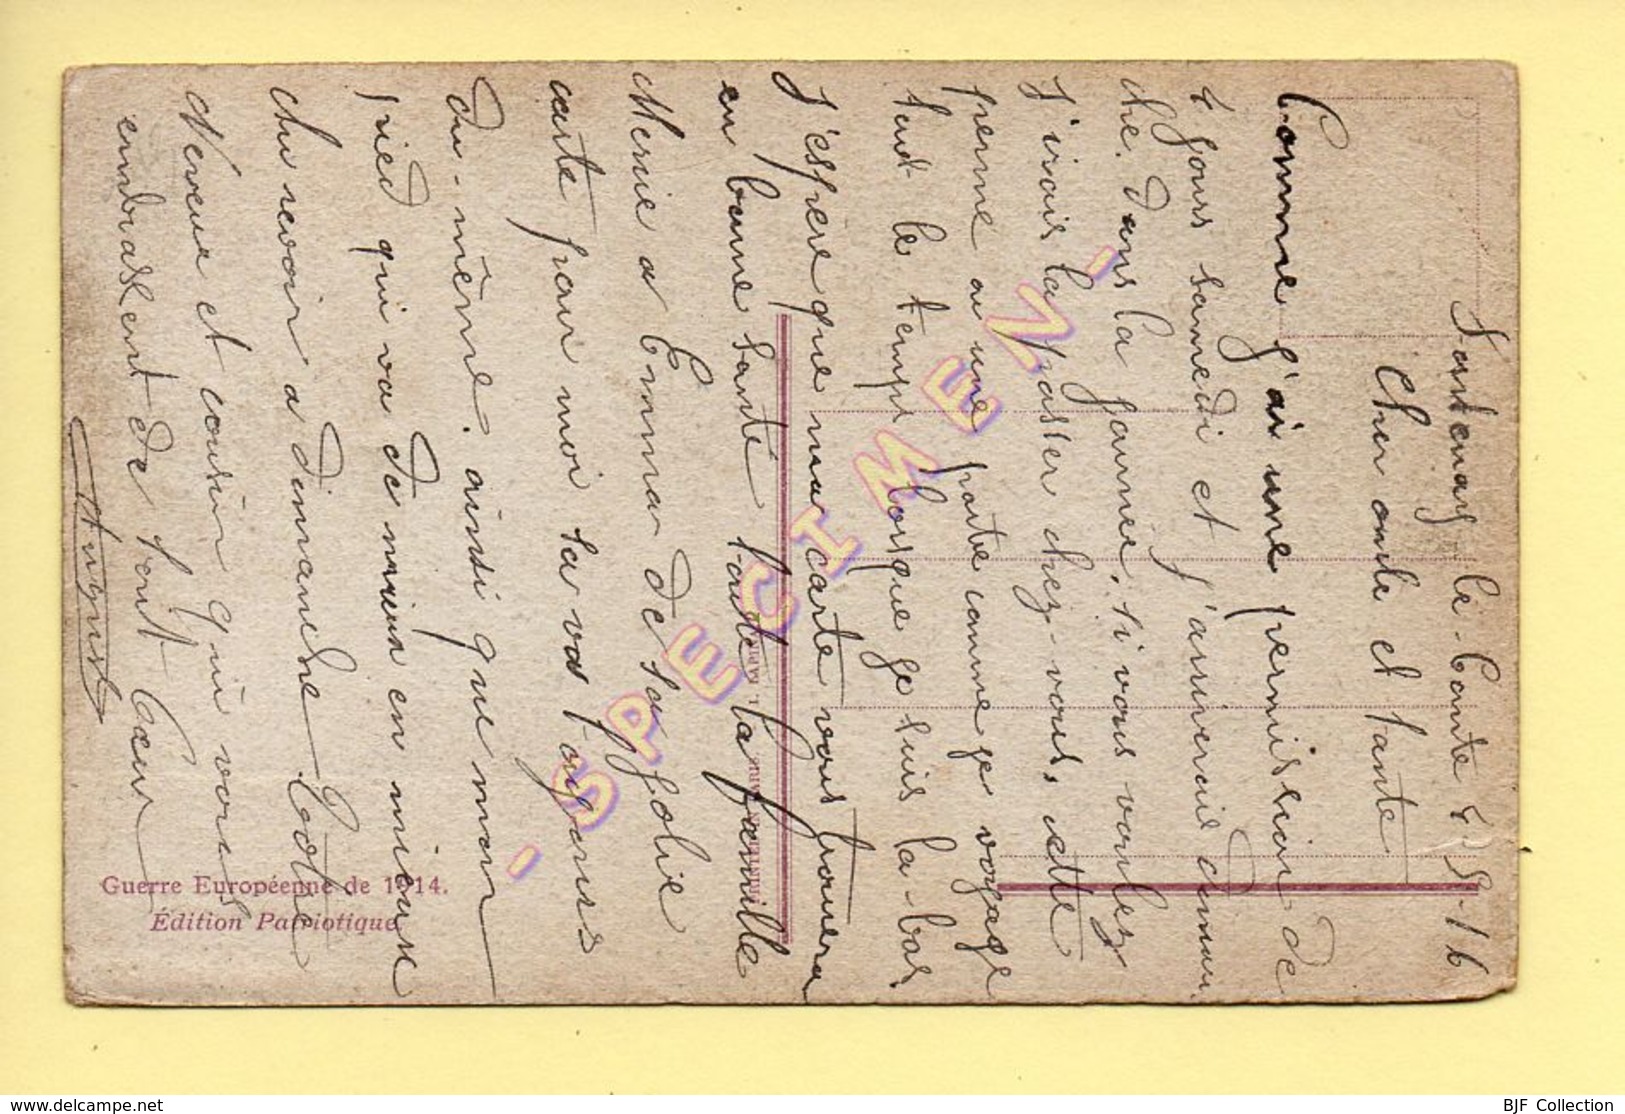 Fontenay le-Comte 4-8-16
Cher oncle et tante
Comme j'ai une permission de
4 jours samedi et j'arriverai diman
che. dans la journée. si vous voulez
j'irais la passer chez-vous, cette
perme a une porte comme je voyage
tout le temps lorsque je suis la-bas
J'espère que ma carte vous trouvera
en bonne santé toute la famille
Merci a Emma de sa jolie
carte pour moi sa va toujours
du-même. ainsi que mon
pied qui va de mieux en mieux
Au revoir a dimanche Votre
Neveu et cousin qui vous
embrassent de tout Cœur
Auguste
Guerre Européenne de 1914.
Édition Patriotique
- SPECIMEN -
http://www.delcampe.net
BJF Collection